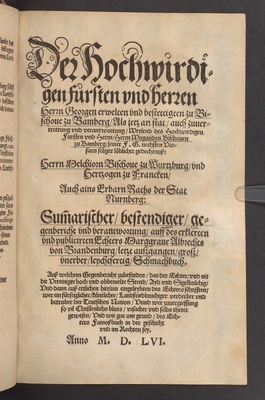 Der Hochwirdi-
gen fürsten vnd herren
Herrn Georgen erwelten vnd bestettigten zu Bi-
schoue zu Bamberg/ Als jetz an stat/ auch zuuer-
trettung vnd verantwortung/ Weylend des Hochwirdigen
Fürsten vnd Herrn/ Herrn Weyganden Bischouen
zu Bamberg seiner F. G. nechsten Vor-
farn seliger löblicher gedechtnuß:
Herrn Melchiorn Bischoue zu Wurtzburg/ vnd
Hertzogen zu Francken/
Auch ains Erbarn Raths der Stat
Nurnberg:
Sumarischer/ bestendiger/ ge-
genbericht vnd verantwortung/ auff des erklerten
vnd publicirten Echters Marggraue Albrechts
von Brandenburg/ jetz außgangen/ groß/
vnerber/ leychtfertig/ Schmachbuch.
Auß welchem Gegenbericht zubefinden/ das der Echter/ vnd nit
die Vereinigte hoch vnd obbemelte Stend/ Ayd vnd Sigelbrüchig/
Vnd dann auß etlichen hierinn eingeleybten des Echters schrifften/
wer ein fürsetzlicher/ künstlicher/ Landfridbrechiger verderber vnd
betrüber der Teutschen Nation/ Vnnd wer vnuergiessung
so vil Christenlichs bluts/ vrsacher vnd selbs theter
gewesen/ Vnd wie gar one grund/ des Ech-
ters Famoßbuch in der geschicht
vnd im Rechten sey.
Anno M. D. LVI.